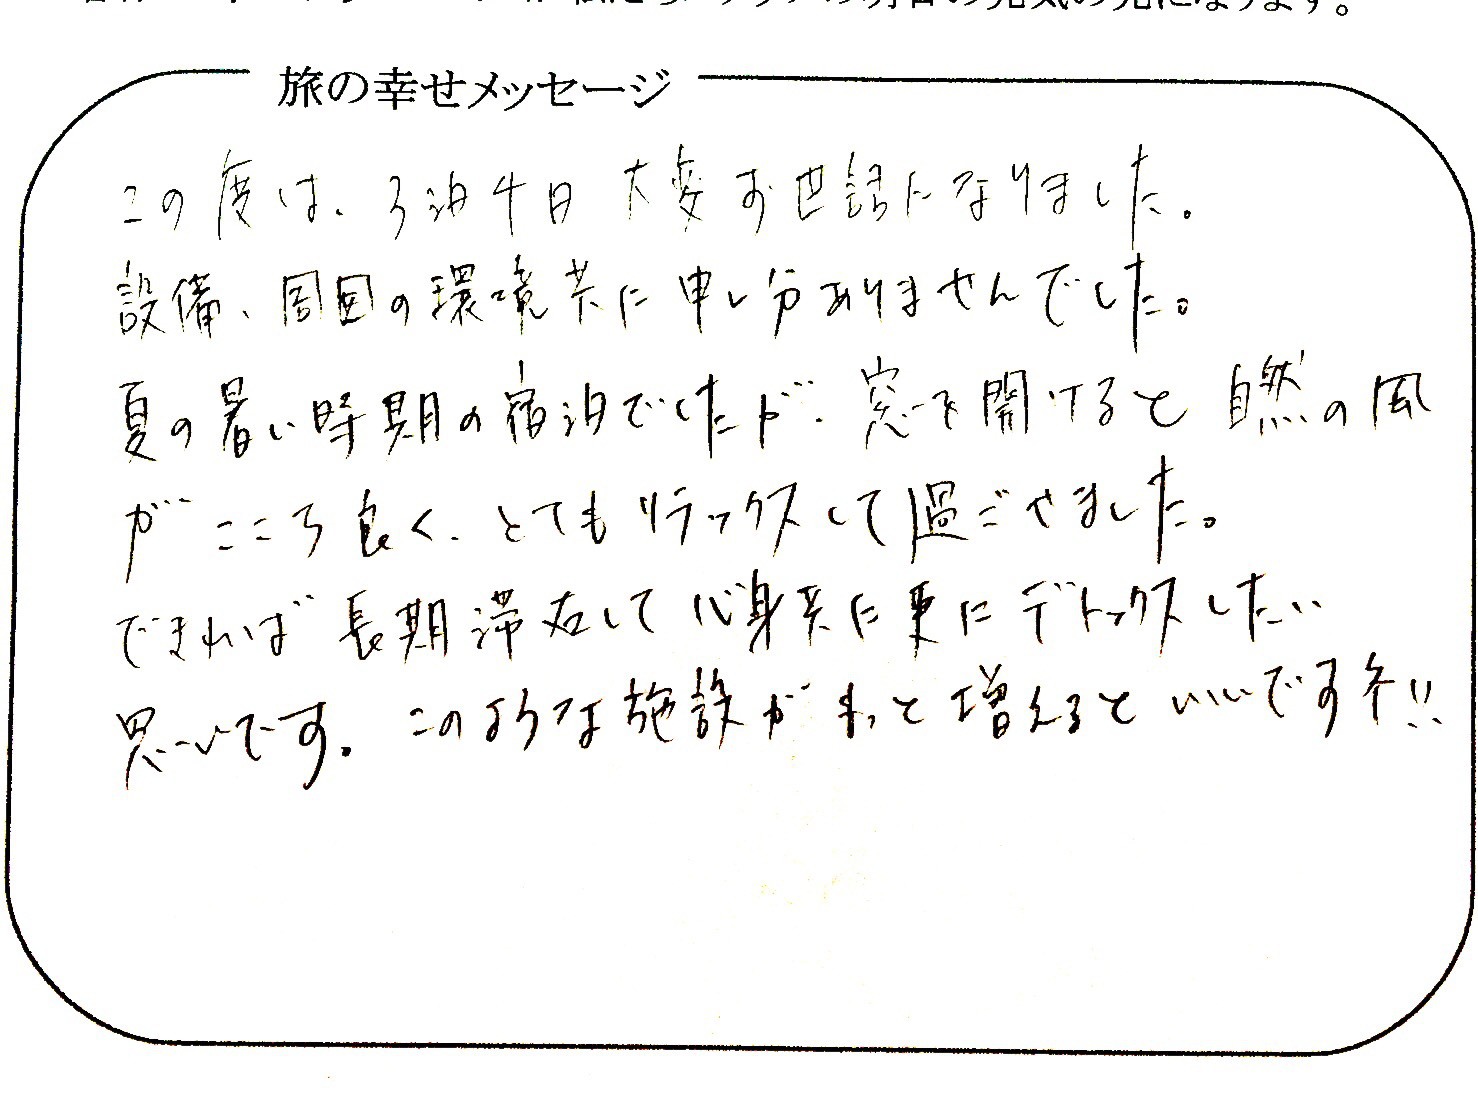 の元気の元になります。
旅の幸せメッセージ
この度は、3泊4日 大変お世話になりました。
設備、周囲の環境共に申し分ありませんでした。
夏の暑い時期の宿泊でしたが、窓を開けると自然の風
がこころ良く、とてもリラックスして過ごせました。
できれば長期滞在して心身共に更にデトックスしたい
思いです。このような施設がもっと増えるといいですネ!!